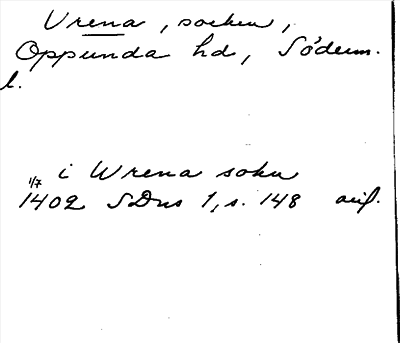 Vrena, socken,
Oppunda hd, Söderm.
l.
i Wrena sokn
1/7
1402 SDns 1, s. 148 avs.